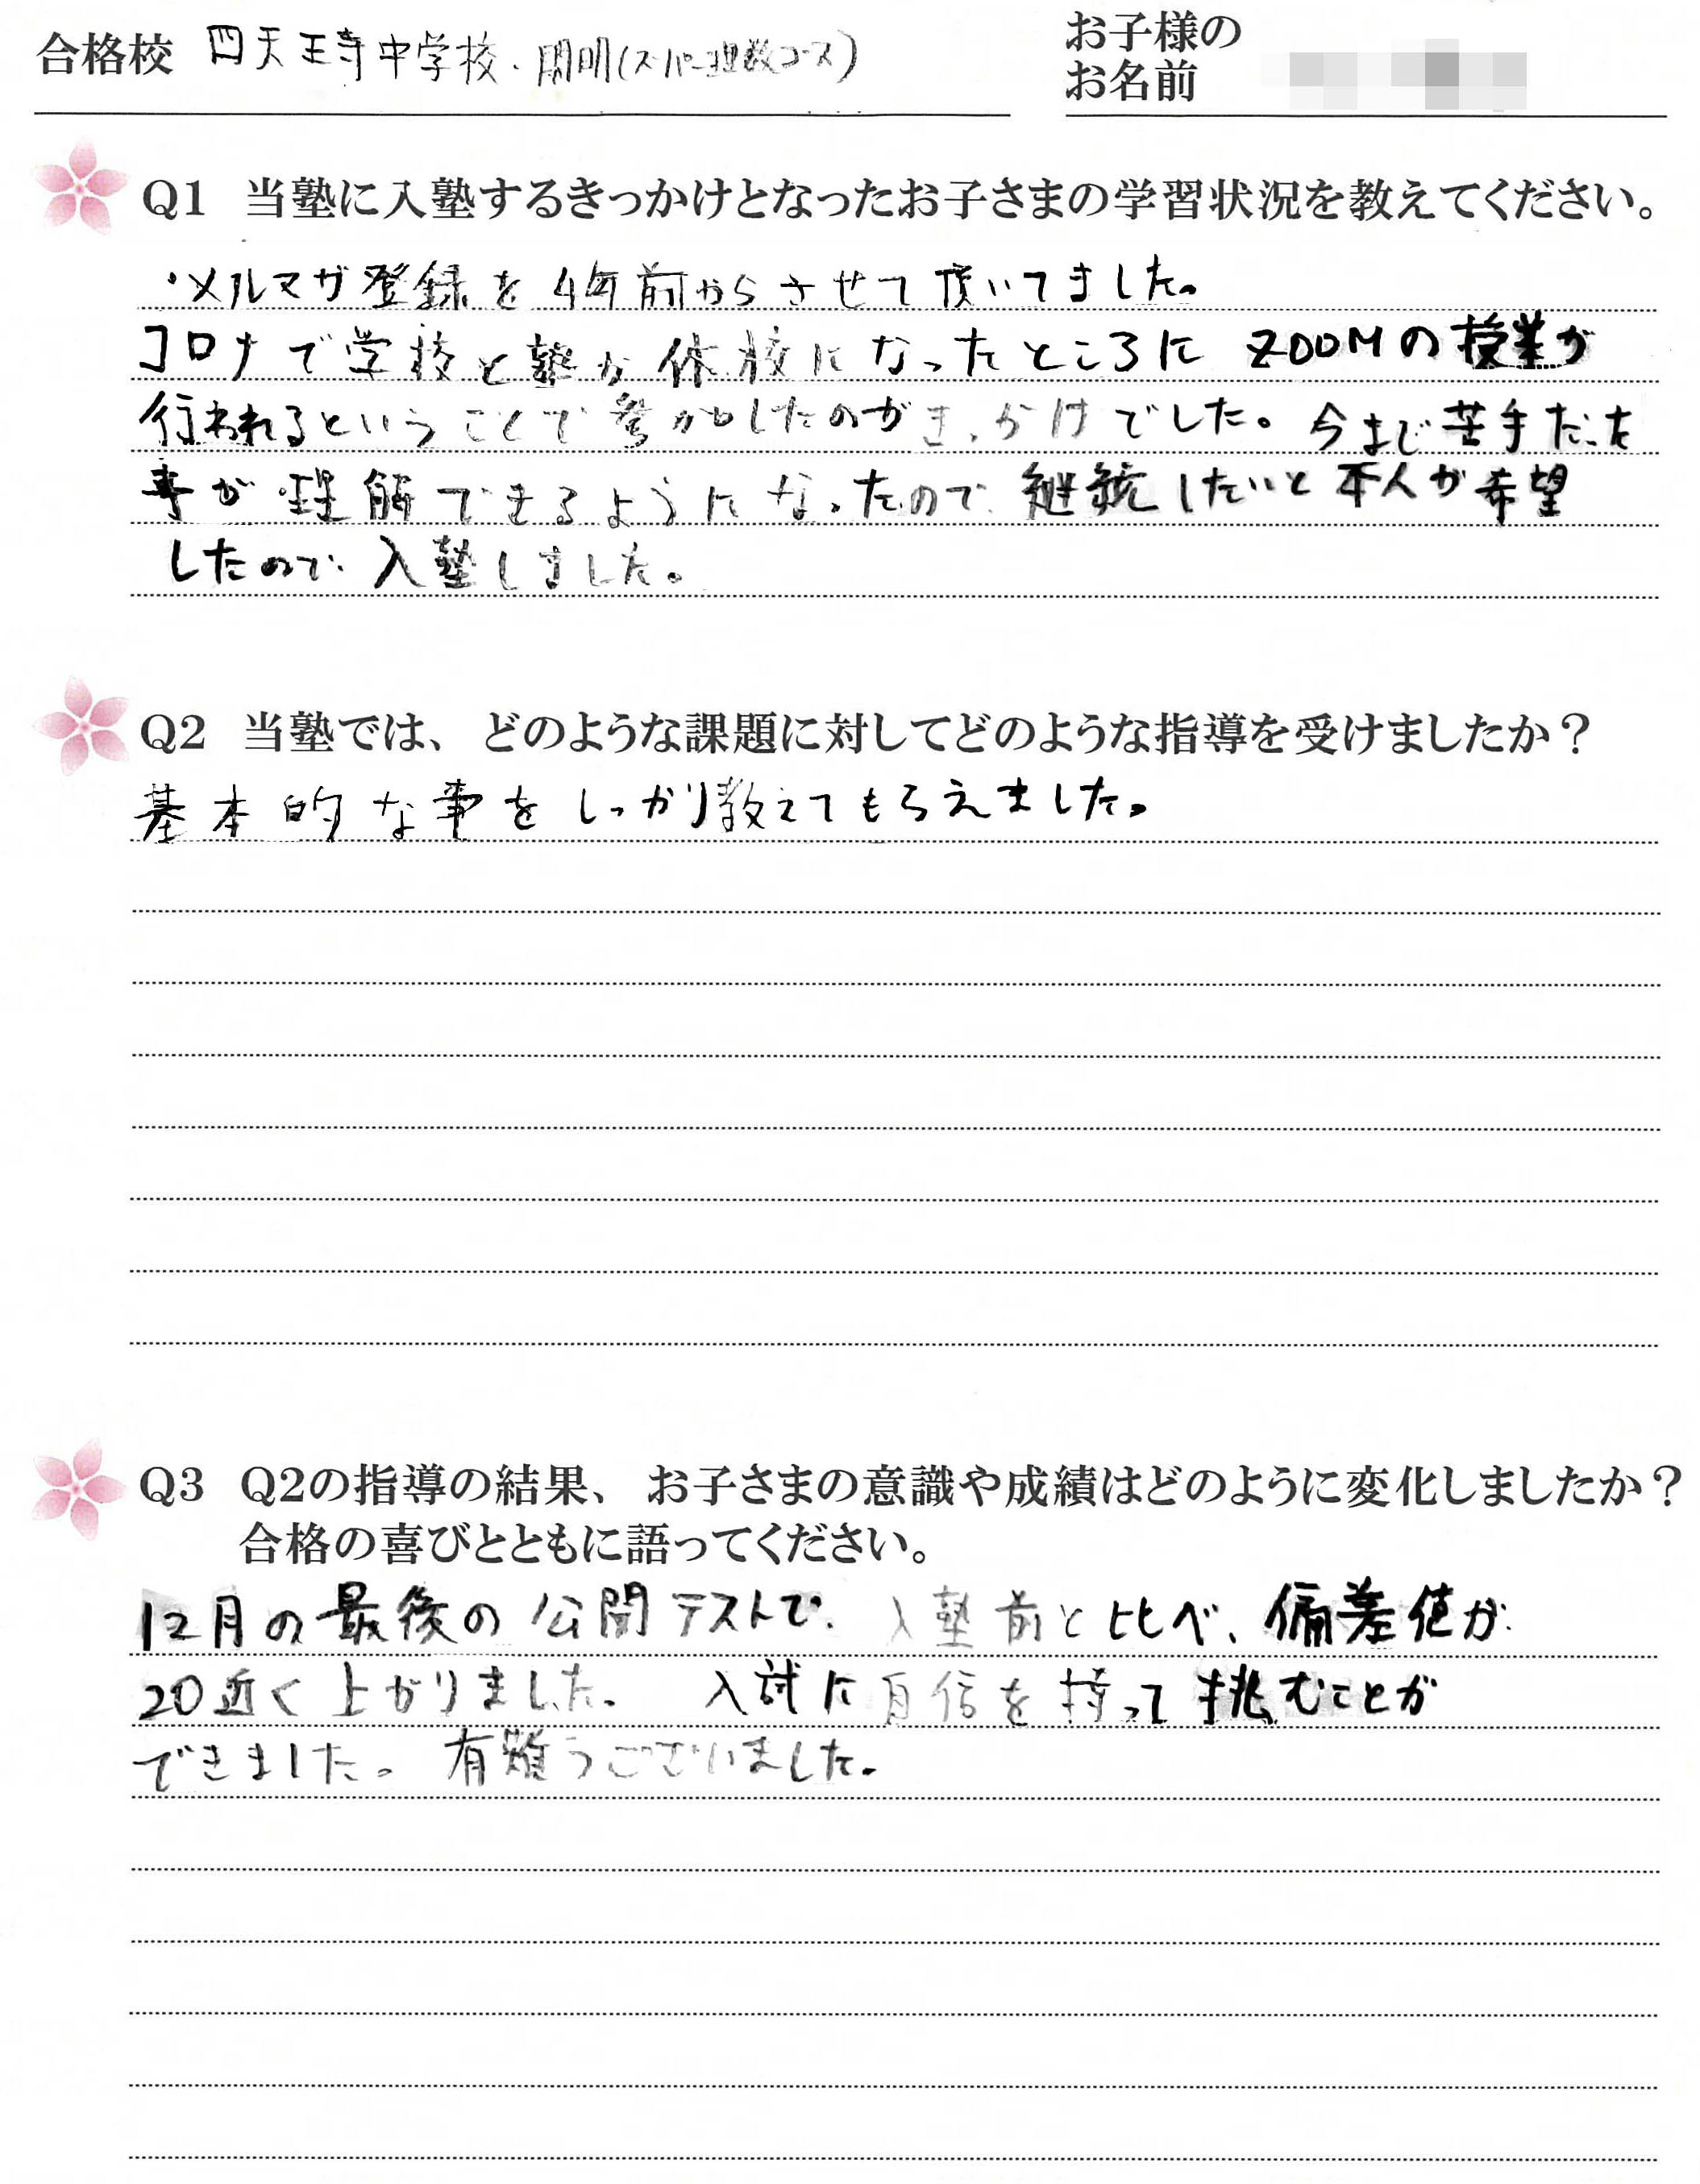 合格校 四天王寺中学校・開明(スーパー理数コース)
お子様の
お名前
Q1 当塾に入塾するきっかけとなったお子さまの学習状況を教えてください。
・メルマガ登録を4年前からさせて頂いてました。
コロナで学校と塾が休校になったところに ZOOMの授業が
行われるということで参加したのがきっかけでした。今まで苦手だった
事が理解できるようになったので、継続したいと本人が希望
したので、入塾しました。
Q2 当塾では、どのような課題に対してどのような指導を受けましたか？
基本的な事をしっかり教えてもらえました。
Q3 Q2の指導の結果、お子さまの意識や成績はどのように変化しましたか？
合格の喜びとともに語ってください。
12月の最後の公開テストで、入塾前と比べ、偏差値が
20近く上がりました。 入試に自信を持って挑むことが
できました。有難うございました。